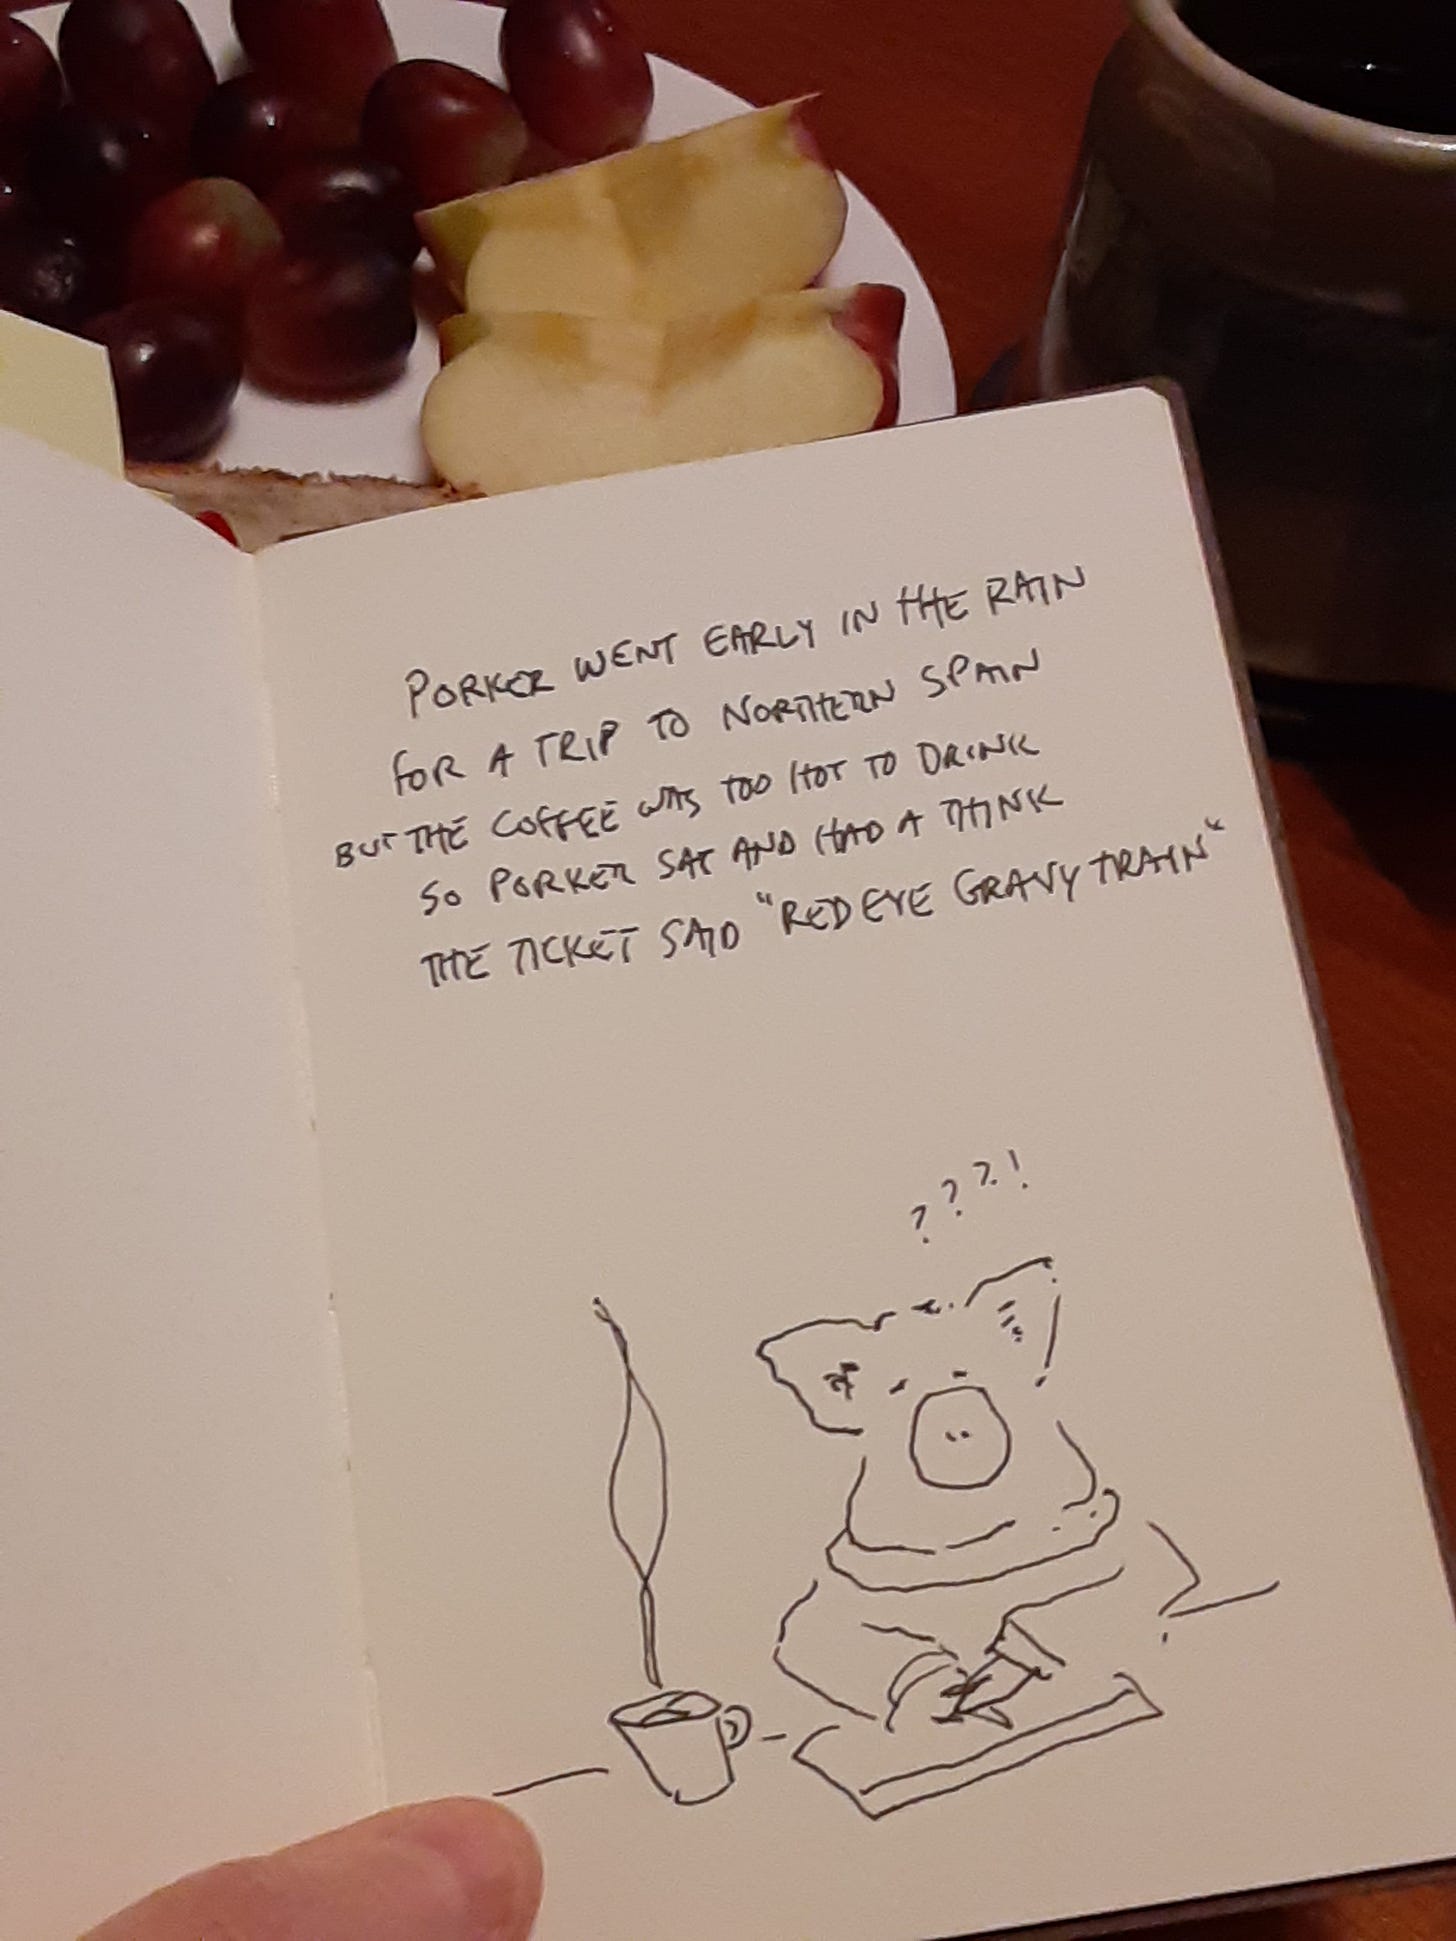 PORKER WENT EARLY IN THE RAIN
FOR A TRIP TO NORTHERN SPAIN
BUT THE COFFEE WAS TOO HOT TO DRINK
SO PORKER SAT AND HAD A THINK
THE TICKET SAID "RED EYE GRAVY TRAIN"
? ? ? !